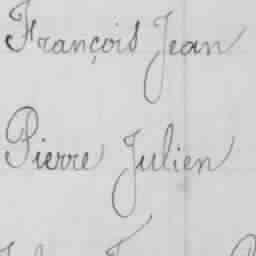 François Jean
Pierre Julien